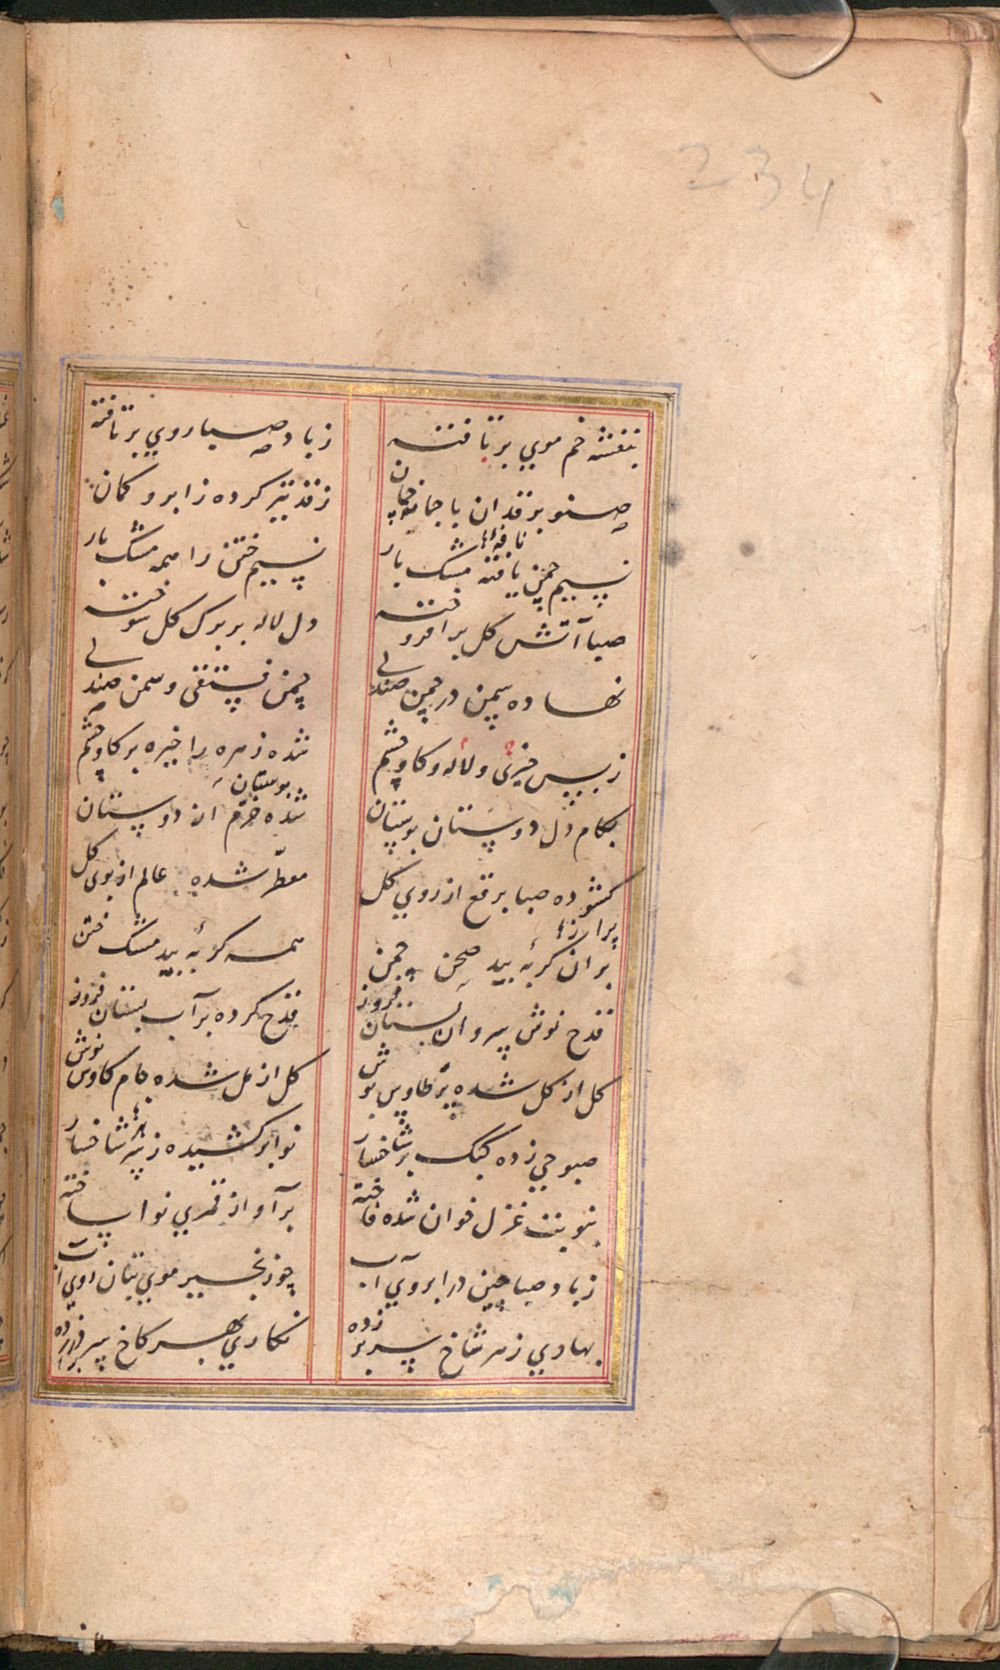 234
بنفشه خم موی برتافته
ز باد صبا روی برتافته
صنوبر قدان با چمانه چمان
ز قد تیر کرده ز ابرو کمان
نسیم چمن یافته مشک بار
نافه‌ها
نسیم ختن را همه مشک بار
صبا آتش گل برافروخته
دل لاله بر برک گل سوخته
نهاده سمن در چمن صندلی
چمن فستقی و سمن صندلی
ز بس خیری و لاله و کاوچشم
شده زهره را خیره بر کاوچشم
بکام دل دوستان بوستان
شده خرّم از دوستان
بوستان
کشوده صبا برقع از روی گل
معطّر شده عالم از بوی گل
بران کربه بید صحن چمن
پر ازرها
همه کربه بید مشک ختن
قدح نوش پیروان بستان فروز
قدح کرده بر آب بستان فروز
کل از کل شده پرّ طاوس پوش
کل از مل شده جام کاوس نوش
صبوحی زده کبک بر شاخسار
نوا برکشیده ز هر شاخسار
بنوبت غزل خوان شده فاخته
بر آواز قمری نوا ساخته
ز باد صبا چین در ابروی آب
چو زنجیر موی بتان روی آب
بهاری ز هر شاخ سر بر زده
نکاری بهر کاخ سر بر زده